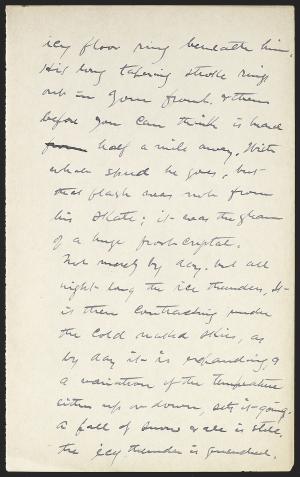 icy floor ring beneath him.
His long tapering stroke rings
out in your front. & then
before you can think is heard
from half a mile away. With
what speed he goes, but
that flash was not from
his skate; it was the gleam
of a huge frost crystal.
Not merely by day. but all
night long the ice thunders, It
is then contracting under
the cold naked skies, as
by day it is expanding, &
a variation of the temperature
either up or down, sets it going.
a fall of snow & all is still.
the icy thunder is quenched.